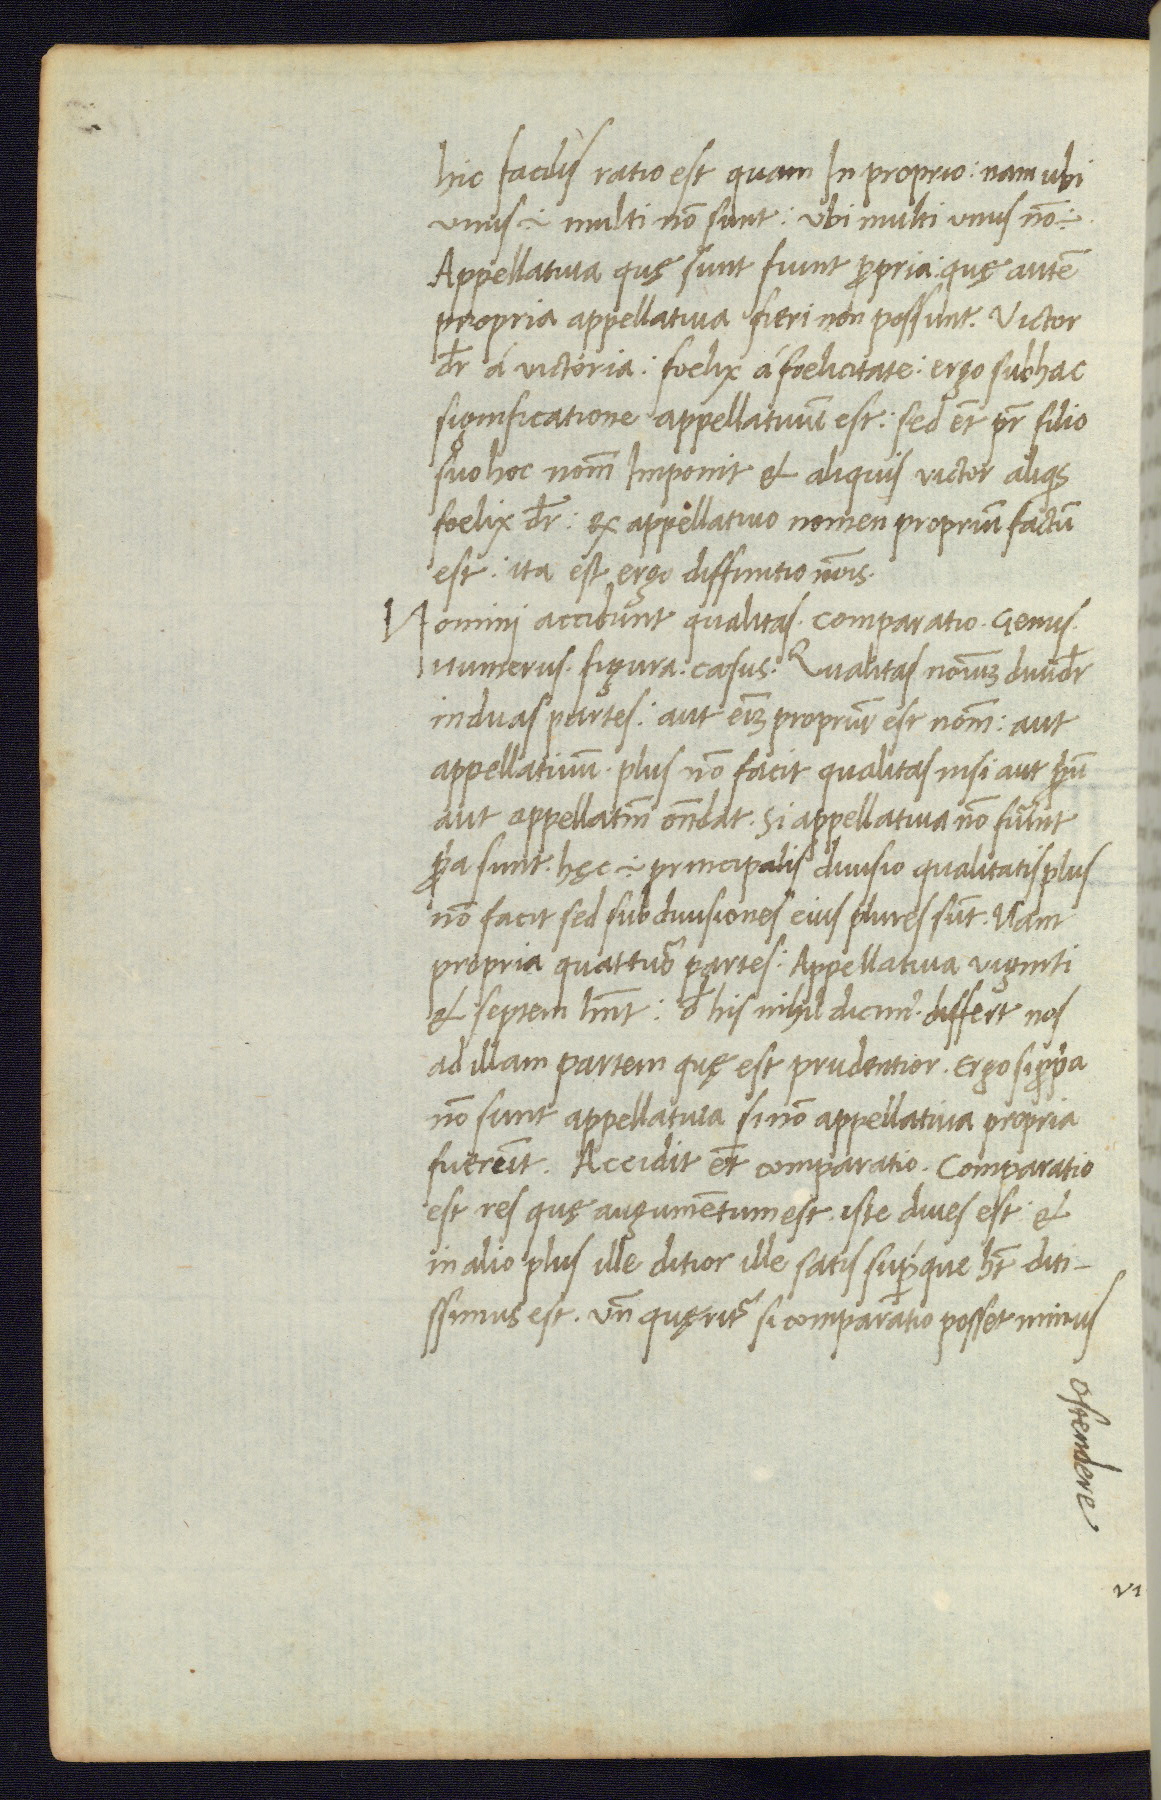 hic facilis ratio est quam In proprio: nam ubi
vnus ÷ multi nō sunt: vbi multi vnus nō ÷
Appellatiua quę sunt fiunt ꝓpria: quę autē
propria appellatiua fieri non possunt. Victor
dr̄ á victoria: foelix á foelicitate: ergo sub hac
significatione appellatiuū est: sed et̄ pr̄ filio
suo hoc nom̄ Imponit & aliquis victor aliqs
foelix dr̄: ex appellatiuo nomen propriū factū
est: ita est ergo diffinitio nōis.
Nomini accidunt qualitas. comparatio. Genus.
numerus. figura: casus: Qualitas noīuꝫ diuidr̄
in duas partes: aut eīꝫ propriū est nom̄: aut
appellatiuū. plus nō facit qualitas nisi aut ꝓpriū
aut appellatiū on̄dat. Si appellatiua nō fuīnt
ꝓpa sunt. hęc ÷ principalis diuisio qualitatis plus
nō facit sed subdiuisiones eius plures sūt. Nam
propria quattuor̄ partes: Appellatiua viginti
& septem hn̄t: d̄ his nihil dicim̄. differt nos
ad illam partem quę est prudentior. Ergo si ꝓpa
nō sunt appellatiua si nō appellatiua propria
fuerēīt. Accidit et̄ comparatio. Comparatio
est res quę augumētum est. iste diues est: &
in alio plus ille ditior ille satis suꝑque ht̄ diti-
ssimus est. Vn̄ quęrit᷑ si comparatio posset minus
ostendere
VI